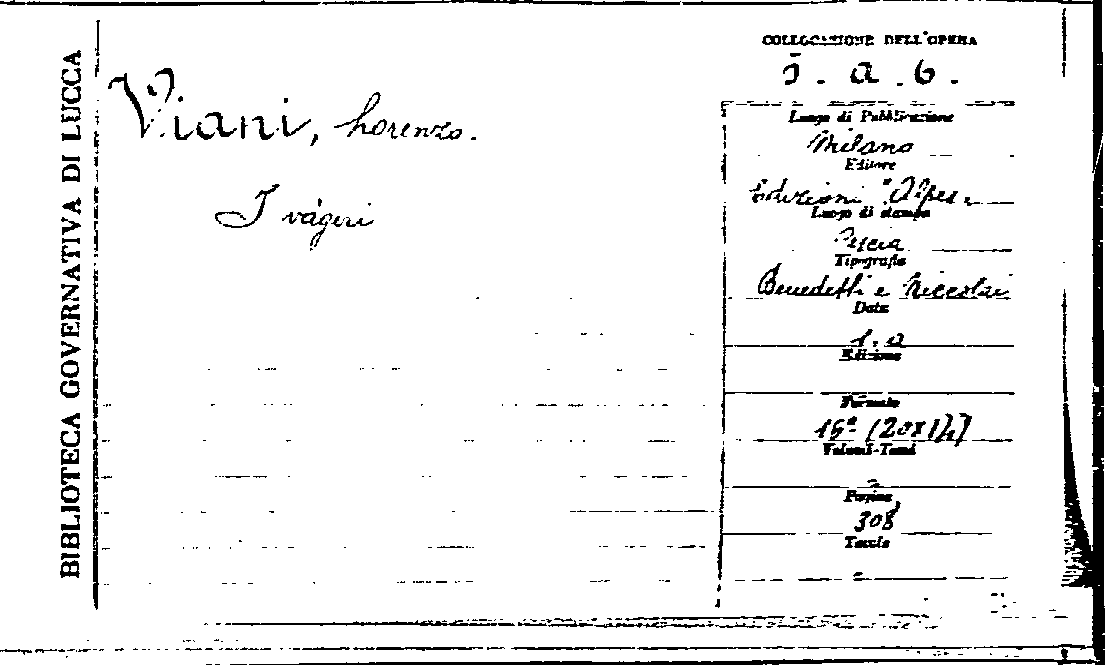 BIBLIOTECA GOVERNATIVA DI LUCCA
Viani, Lorenzo.
I vàgeri
COLLOCAZIONE DELL'OPERA
a. 6.
Luogo di Pubblicazione
Milano
Editore
Edizioni "Alpes"
Luogo di stampa
Pescia
Tipografia
Benedetti e Niccolai
Data
Edizione
Formato
16° (20x14)
Volumi-Tomi
Pagine
308
Tavole